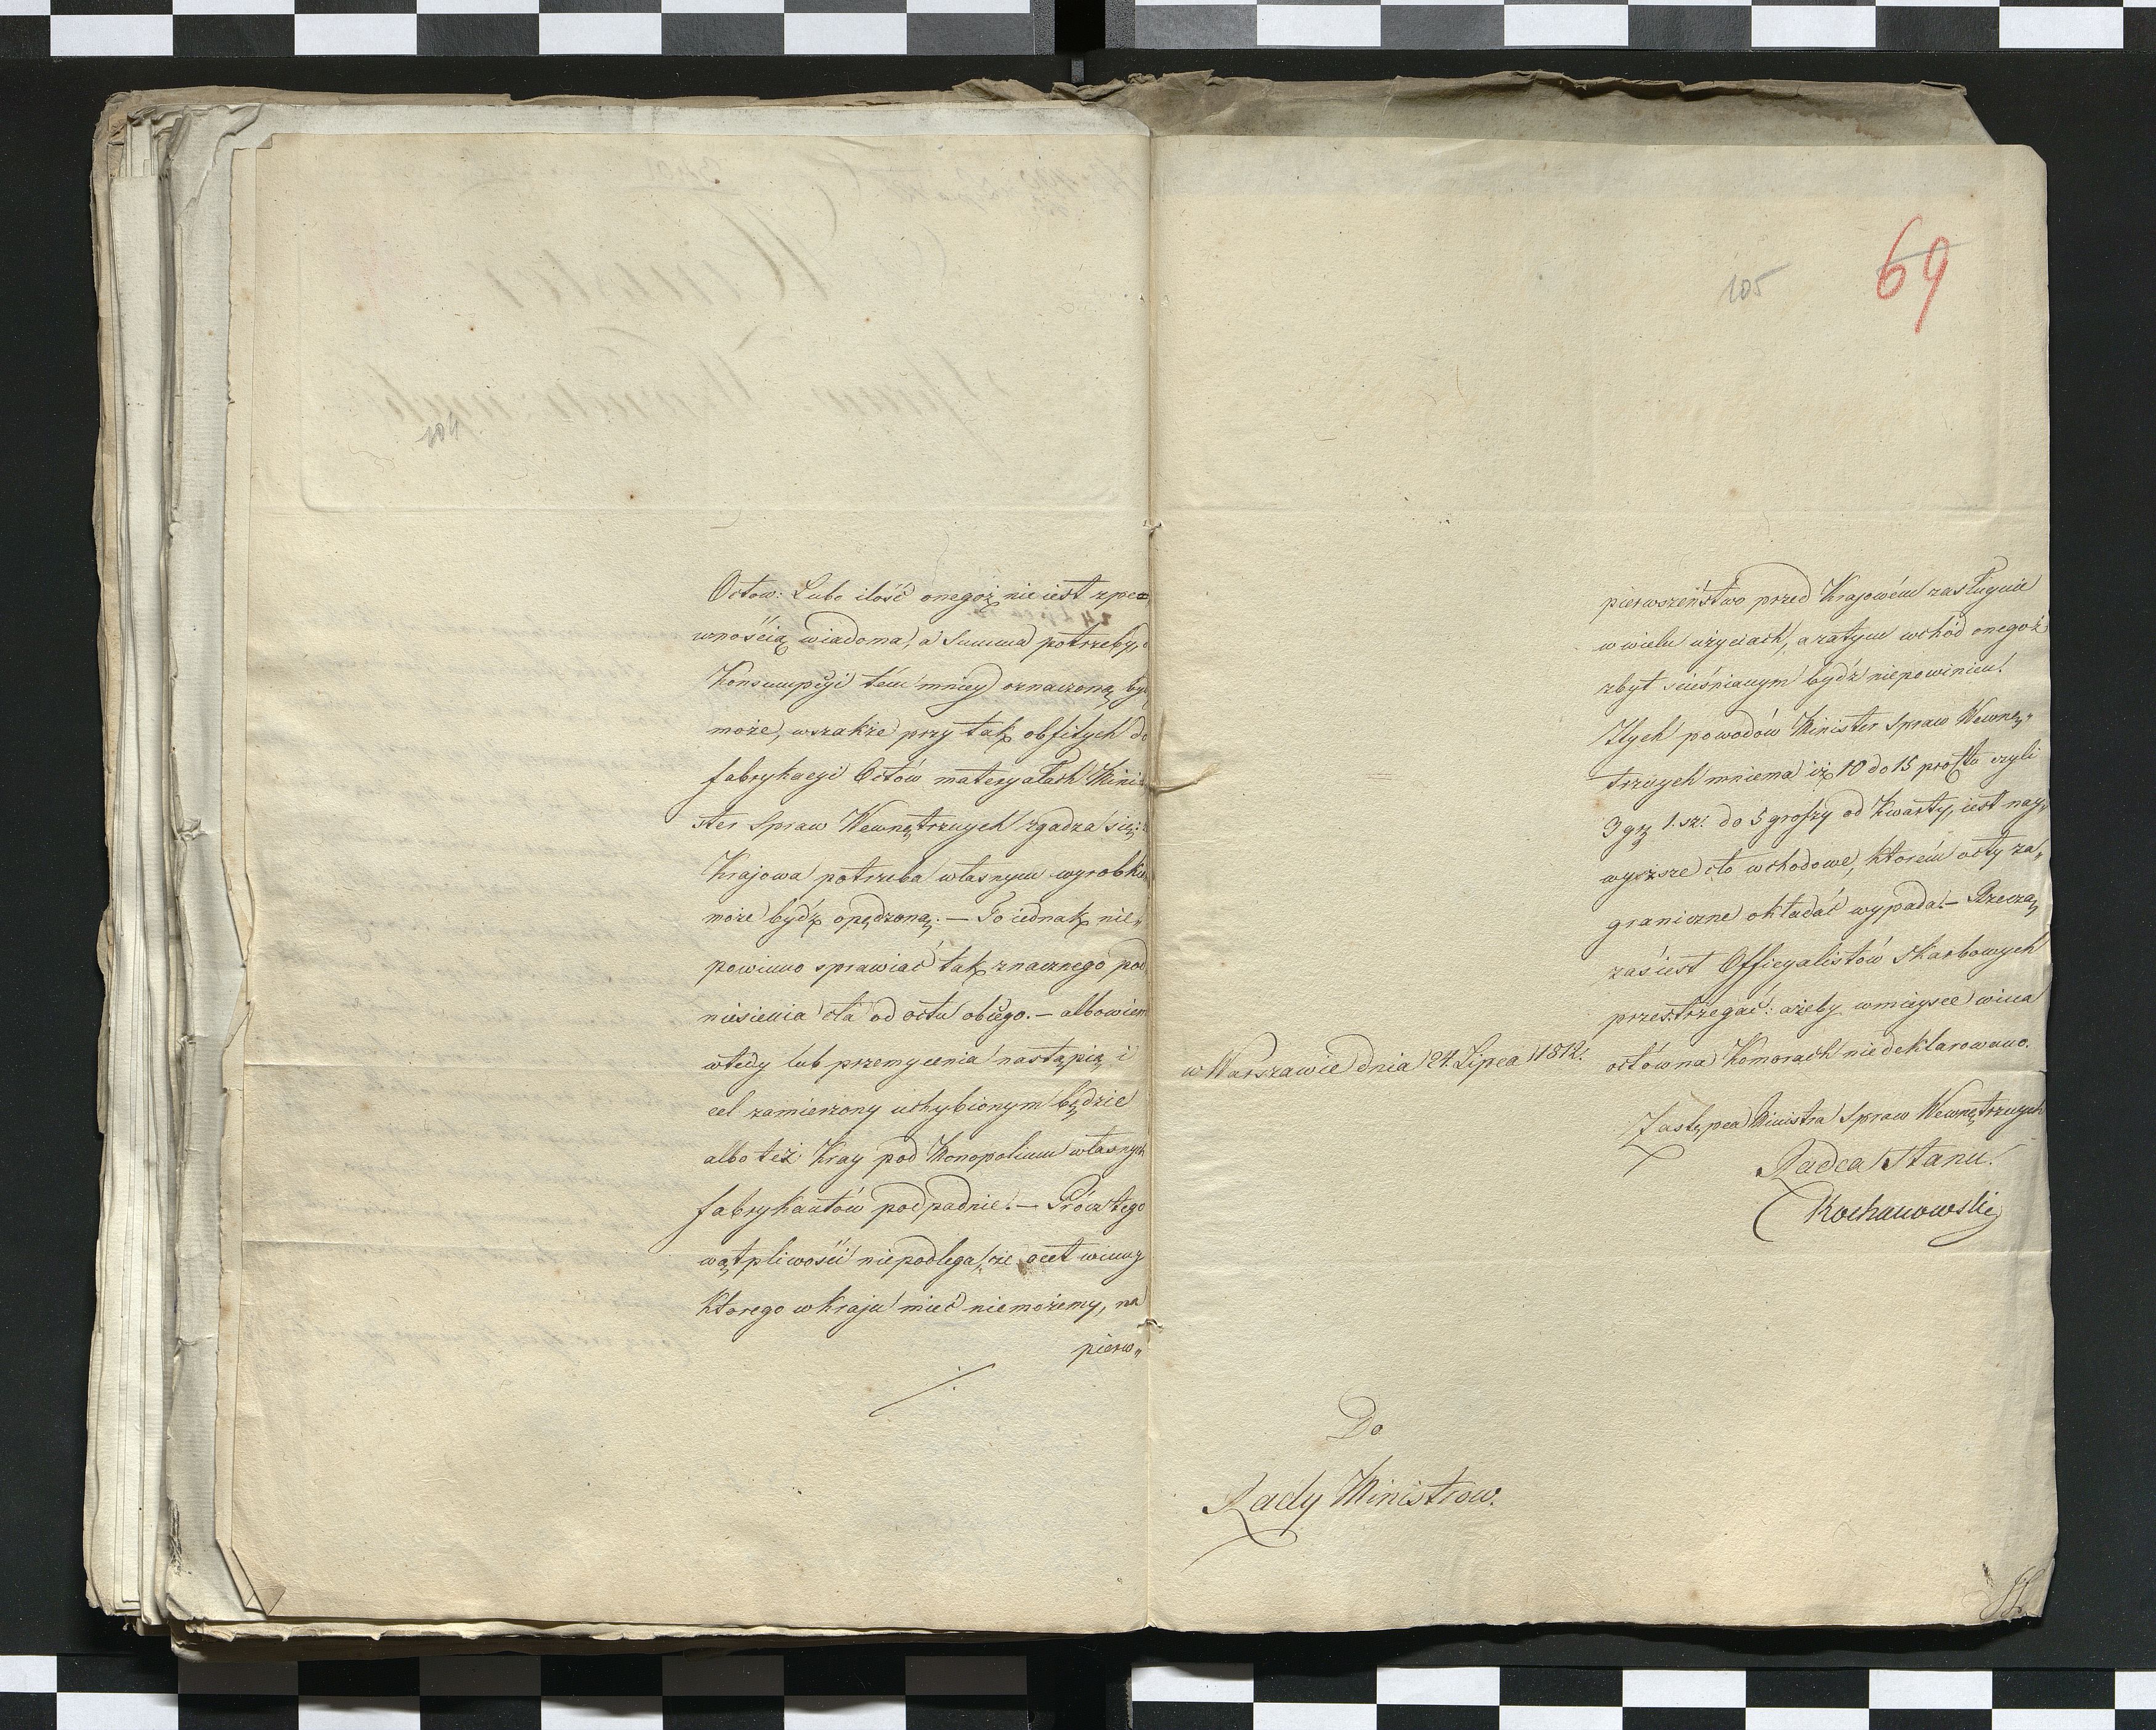 104
Octow: Lubo ilość onegoż nie iest zpe„
wnością wiadoma, a Summa potrzeby,
Konsumpcyi tém mniey oznaczoną by
może, wszakże przy tak obfitych do
fabrykacyi Octów materyałach Mini„
ster Spraw Wewnętrznych zgadza się:
Krajowa potrzeba własnym wyrobkiem
może bydź opędzoną. — To iednak nie„
powinno sprawiać tak znacznego pod
niesienia cła od octu obcego. — albowiem
wtedy lub przemycenia nastąpią i
cel zamierzony uchybionym będzie
albo też Kray pod Monopolium własnych
fabrykantów podpadnie. — Prócz tego
wątpliwości niepodlega, że ocet winny
którego w kraju mieć niemożemy, na
pierw„
105
69
pierwszeństwo przed Krajowém zasługuie
w wielu użyciach, a zatym wchód onegoż
zbyt scieśnianym bydź niepowinien.
Z tych powodów Minister Spraw Wewnę„
trznych mniema iż 10 do 15 procto czyli
3 gr 1. sz: do 5 groszy od Kwarty, iest nay„
wyższe cło wchodowe, którém octy za„
graniczne okładać wypada. — Rzeczą
zaś iest Officyalistów Skarbowych
przestrzegać: ażeby w mieysce wina
octów na Komorach niedeklarowano.
w Warszawie dnia 24. Lipca 1812.
Zastępca Ministra Spraw Wewnętrznych
Radca Stanu.
Kochanowski
Do
Rady Ministrow.